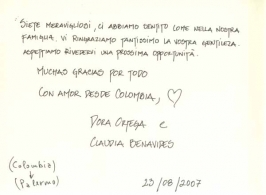 "SIETE MERAVIGLIOSI, CI ABBIAMO SENTITO COME NELLA NOSTRA
FAMIGLIA. VI RINGRAZIAMO TANTISSIMO LA VOSTRA GENTILEZA.
ASPETTIAMO RIVEDERVI UNA PROSSIMA OPPORTUNITÀ.
MUCHAS GRACIAS POR TODO
CON AMOR DESDE COLOMBIA,
DORA ORTEGA E
CLAUDIA BENAVIDES
(Colombia
Palermo)
23/08/2007